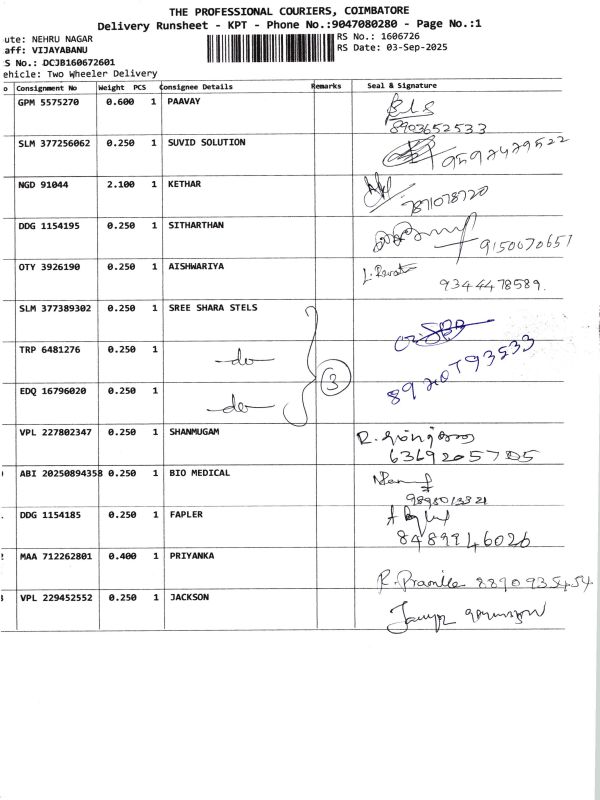 THE PROFESSIONAL COURIERS, COIMBATORE
Delivery Runsheet - KPT - Phone No.:9047080280 - Page No.:1
ute: NEHRU NAGAR
RS No.: 1606726
aff: VIJAYABANU
RS Date: 03-Sep-2025
S No.: DCJB160672601
ehicle: Two Wheeler Delivery
o Consignment No Weight PCS Consignee Details Remarks Seal & Signature
GPM 5575270 0.600 1 PAAVAY
8903652533
SLM 377256062 0.250 1 SUVID SOLUTION
9597479522
NGD 91044 2.100 1 KETHAR
7871078720
DDG 1154195 0.250 1 SITHARTHAN
9150070651
OTY 3926190 0.250 1 AISHWARIYA
9344478589.
SLM 377389302 0.250 1 SREE SHARA STELS
TRP 6481276 0.250 1 -do-
3
EDQ 16796020 0.250 1 -do-
VPL 227802347 0.250 1 SHANMUGAM
R.
6369205705
ABI 20250894358 0.250 1 BIO MEDICAL
DDG 1154185 0.250 1 FAPLER
8489946026
MAA 712262801 0.400 1 PRIYANKA
R.
VPL 229452552 0.250 1 JACKSON